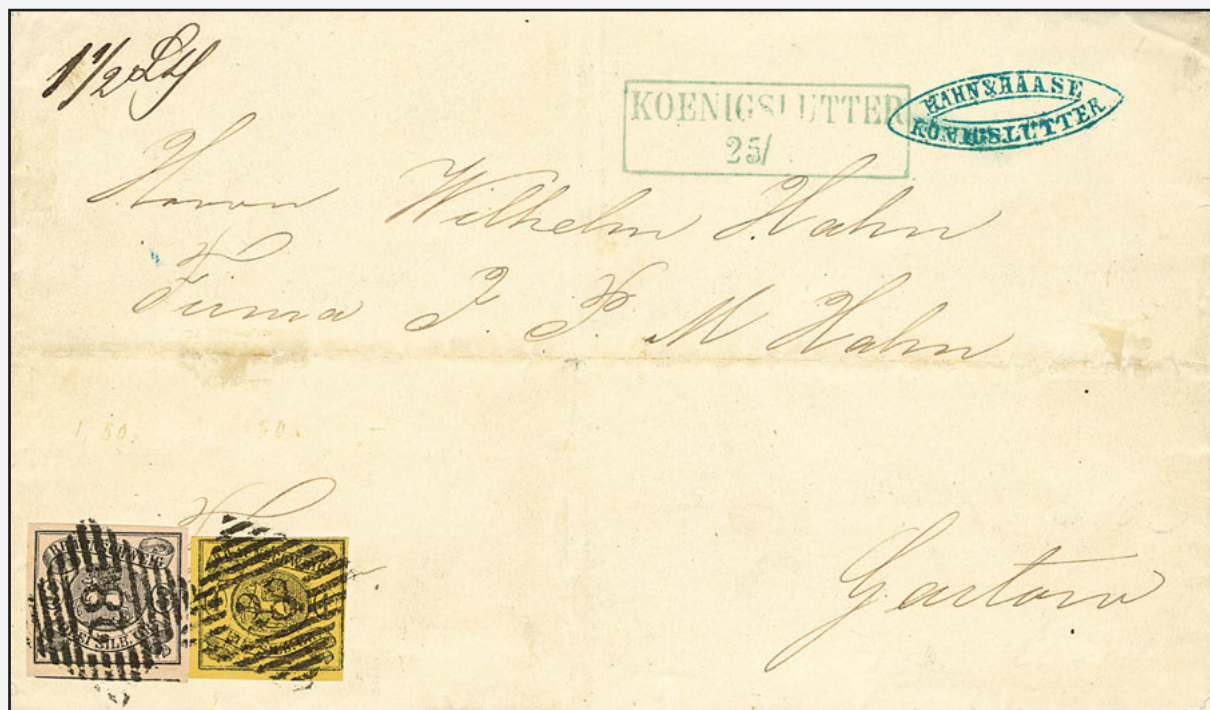 1 1/2 Lth
KOENIGSLUTTER
25/
HAHN & HAASE
KÖNIGSLUTTER
Herrn Wilhelm Hahn
Firma J. P. M Hahn
1,50. 50.
Gartow
BRAUNSCHWEIG